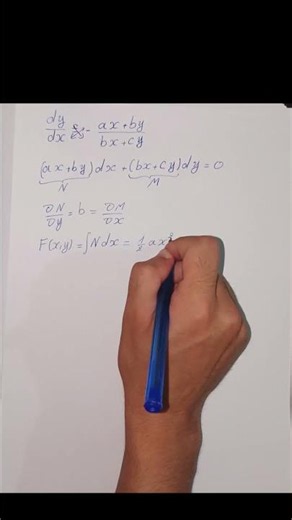 dy/dx = - ax+by / bx+cy
(ax+by)dx + (bx+cy)dy = 0
N M
∂N/∂y = b = ∂M/∂x
F(x,y) = ∫Ndx = 1/2 ax²